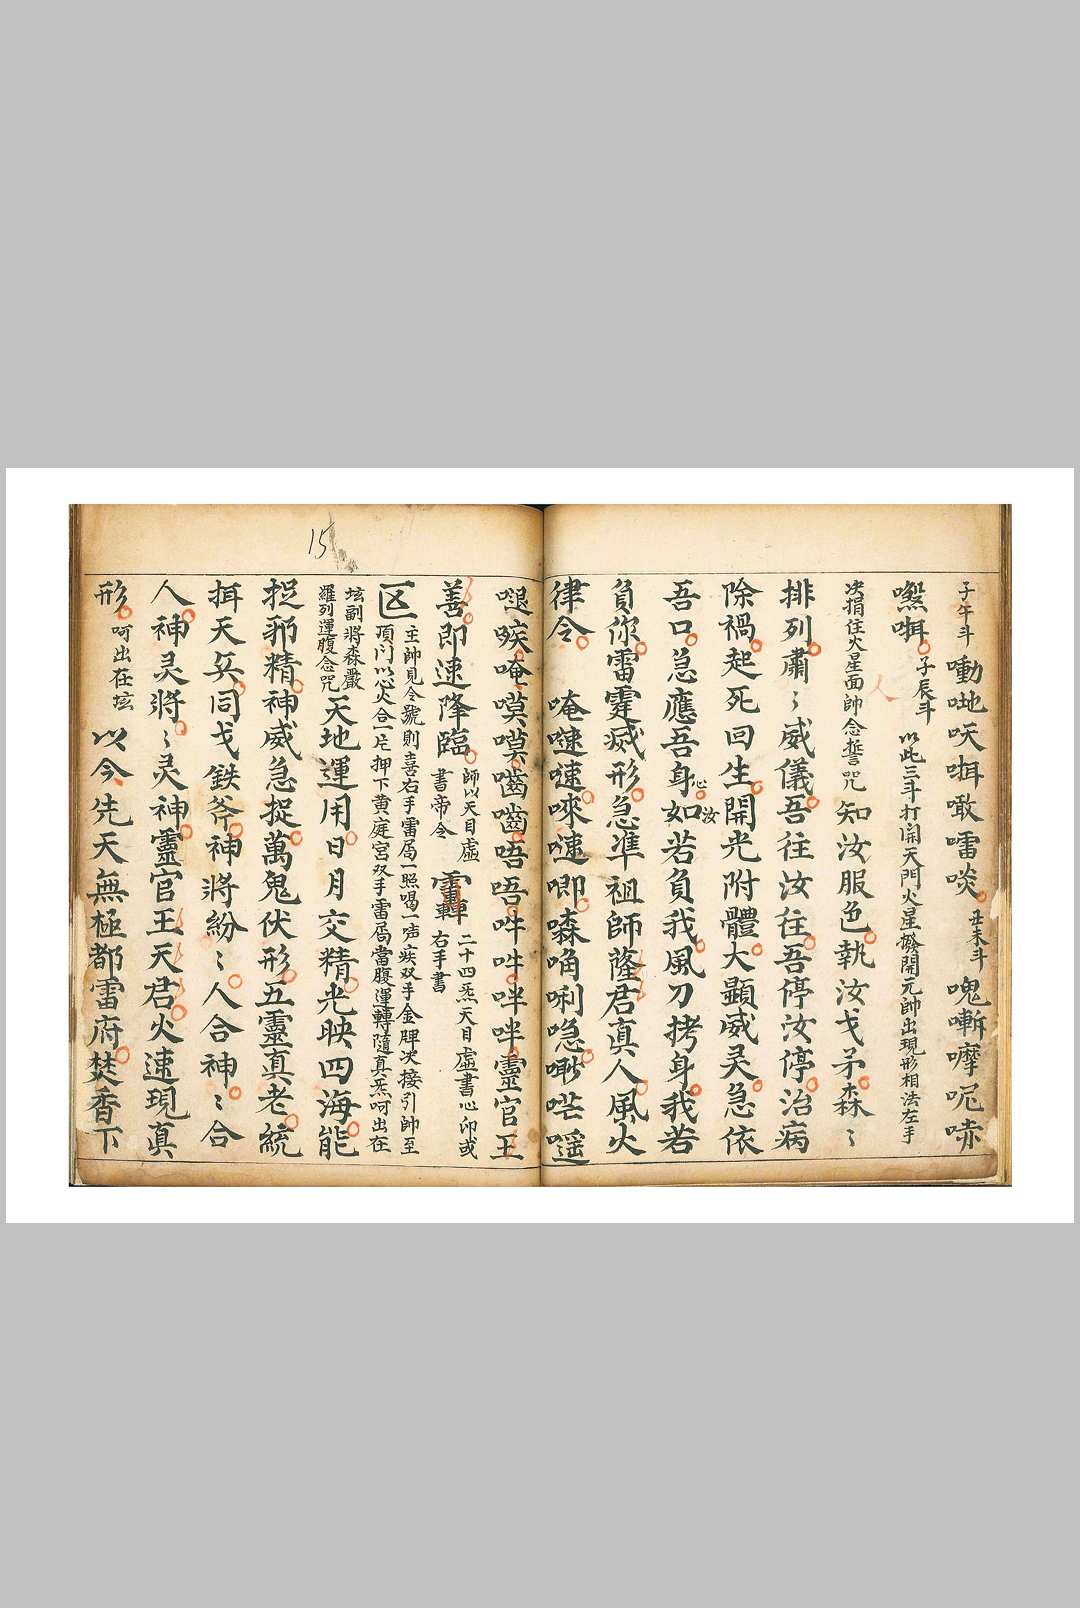 子午斗 嘞哋㕭㖇噉𡃇啖 丑未斗 嘶嚤呢
㖇 子辰斗 以此三斗打開天門火星發開元帥出現形相法左手
次指住火星面帥念誓咒 知汝服色執汝戈矛森〻
排列肅〻威儀吾往汝往吾停汝停治病
除禍起死回生開光附體大顯威灵急依
吾口急應吾身心如汝若負我風刀拷身我若
負你雷霆滅形急準祖師薩君真人風火
律令 唵㗭㗭唻㗭唧嚊唎
唵嗼嗼噛噛唔唔吽吽哶哶靈官王
善即速降臨 師以天目虛書帝令 右手書二十四炁天目虛書心印或
区 主帥見令號則喜右手雷局一照喝一声疾双手金脾次接引帥至
頂门以心火合一片押下黄庭宮双手雷局當腹運轉隨真炁呵出在
坛副將森嚴羅列運腹念咒 天地運用日月交精光映四海能
捉邪精神威急捉萬鬼伏形五靈真老統
揖天兵同戈鉄斧神將紛〻人合神〻合
人神灵將〻灵神靈官王天君火速現真
形 呵出在坛 以今先天無極都雷府焚香下
15